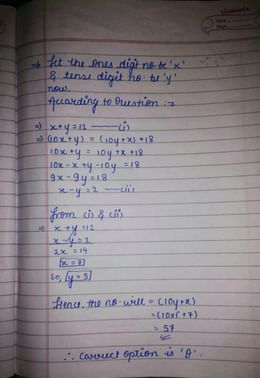 ⇒ Let the ones digit no. be 'x'
& tense digit no. be 'y'
now.
According to Question :-
⇒ x+y=12 —— (i)
⇒ (10x+y) = (10y+x)+18
10x+y = 10y+x+18
10x-x+y-10y =18
9x-9y=18
x-y=2 —— (ii)
from (i) & (ii)
⇒ x+y=12
x-y=2
2x=14
[x=7]
so, [y=5]
Hence, the no. will = (10y+x)
=(10x5+7)
= 57
∴ Correct option is 'A'.